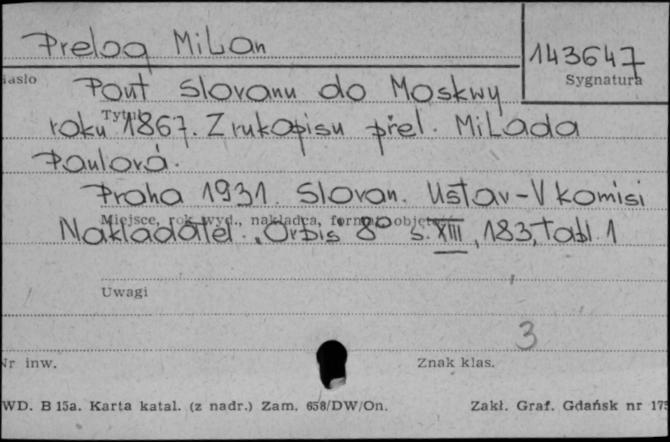 Prelog Milan
143647
Sygnatura
Hasło
Pout Slovanu do Moskwy
Tytuł
roku 1867. Z rukopisu přel. Milada
Paulová.
Praha 1931. Slovan. Ustav - V komisi
Miejsce, rok wyd., nakładca, format, objętość
Nakladatel. „Orbis 8° s. XIII, 183, tabl. 1
Uwagi
3
Nr inw.
Znak klas.
WD. B 15a. Karta katal. (z nadr.) Zam. 658/DW/On.
Zakł. Graf. Gdańsk nr 175